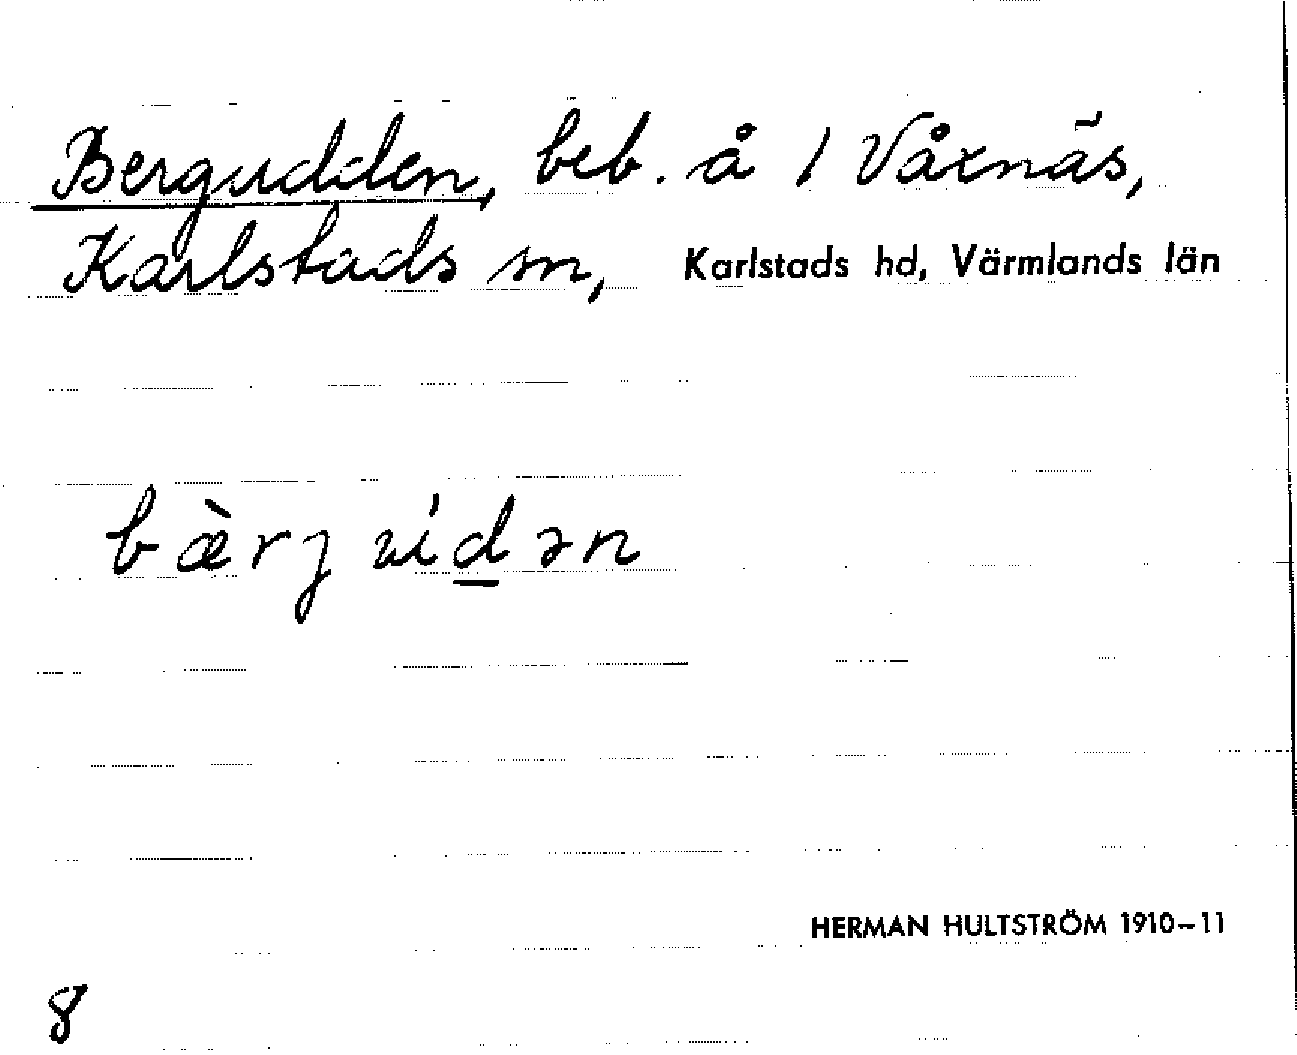 Bergudden, beb. å 1 Våxnäs,
Karlstads sn, Karlstads hd, Värmlands län
bæ̀rj úd̲ən
HERMAN HULTSTRÖM 1910–11
8